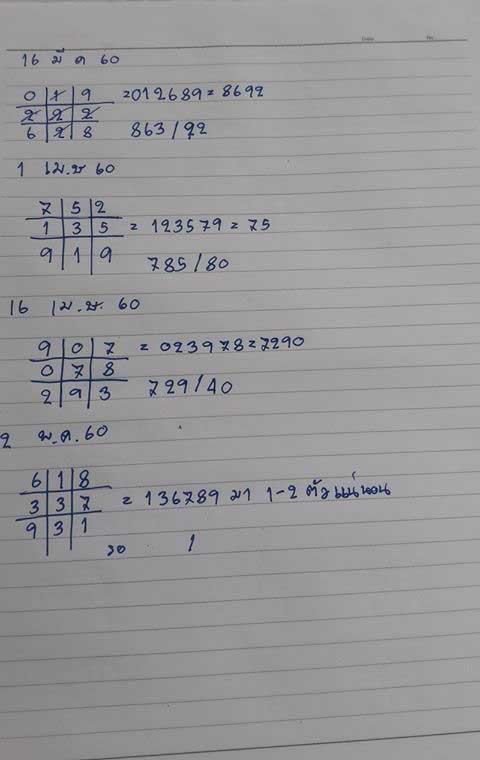 16 มี ค 60
0 1 9 =012689=8692
2 2 2
6 2 8 863/92
1 เม.ษ 60
7 5 2
1 3 5 = 123579 = 75
9 1 9 785/80
16 เม.ษ. 60
9 0 7 = 023978=7290
0 7 8
2 9 3 729/40
2 พ.ค.60
6 1 8
3 3 7 = 136789 มา 1-2 ตัวแน่นอน
9 3 1
รอ /